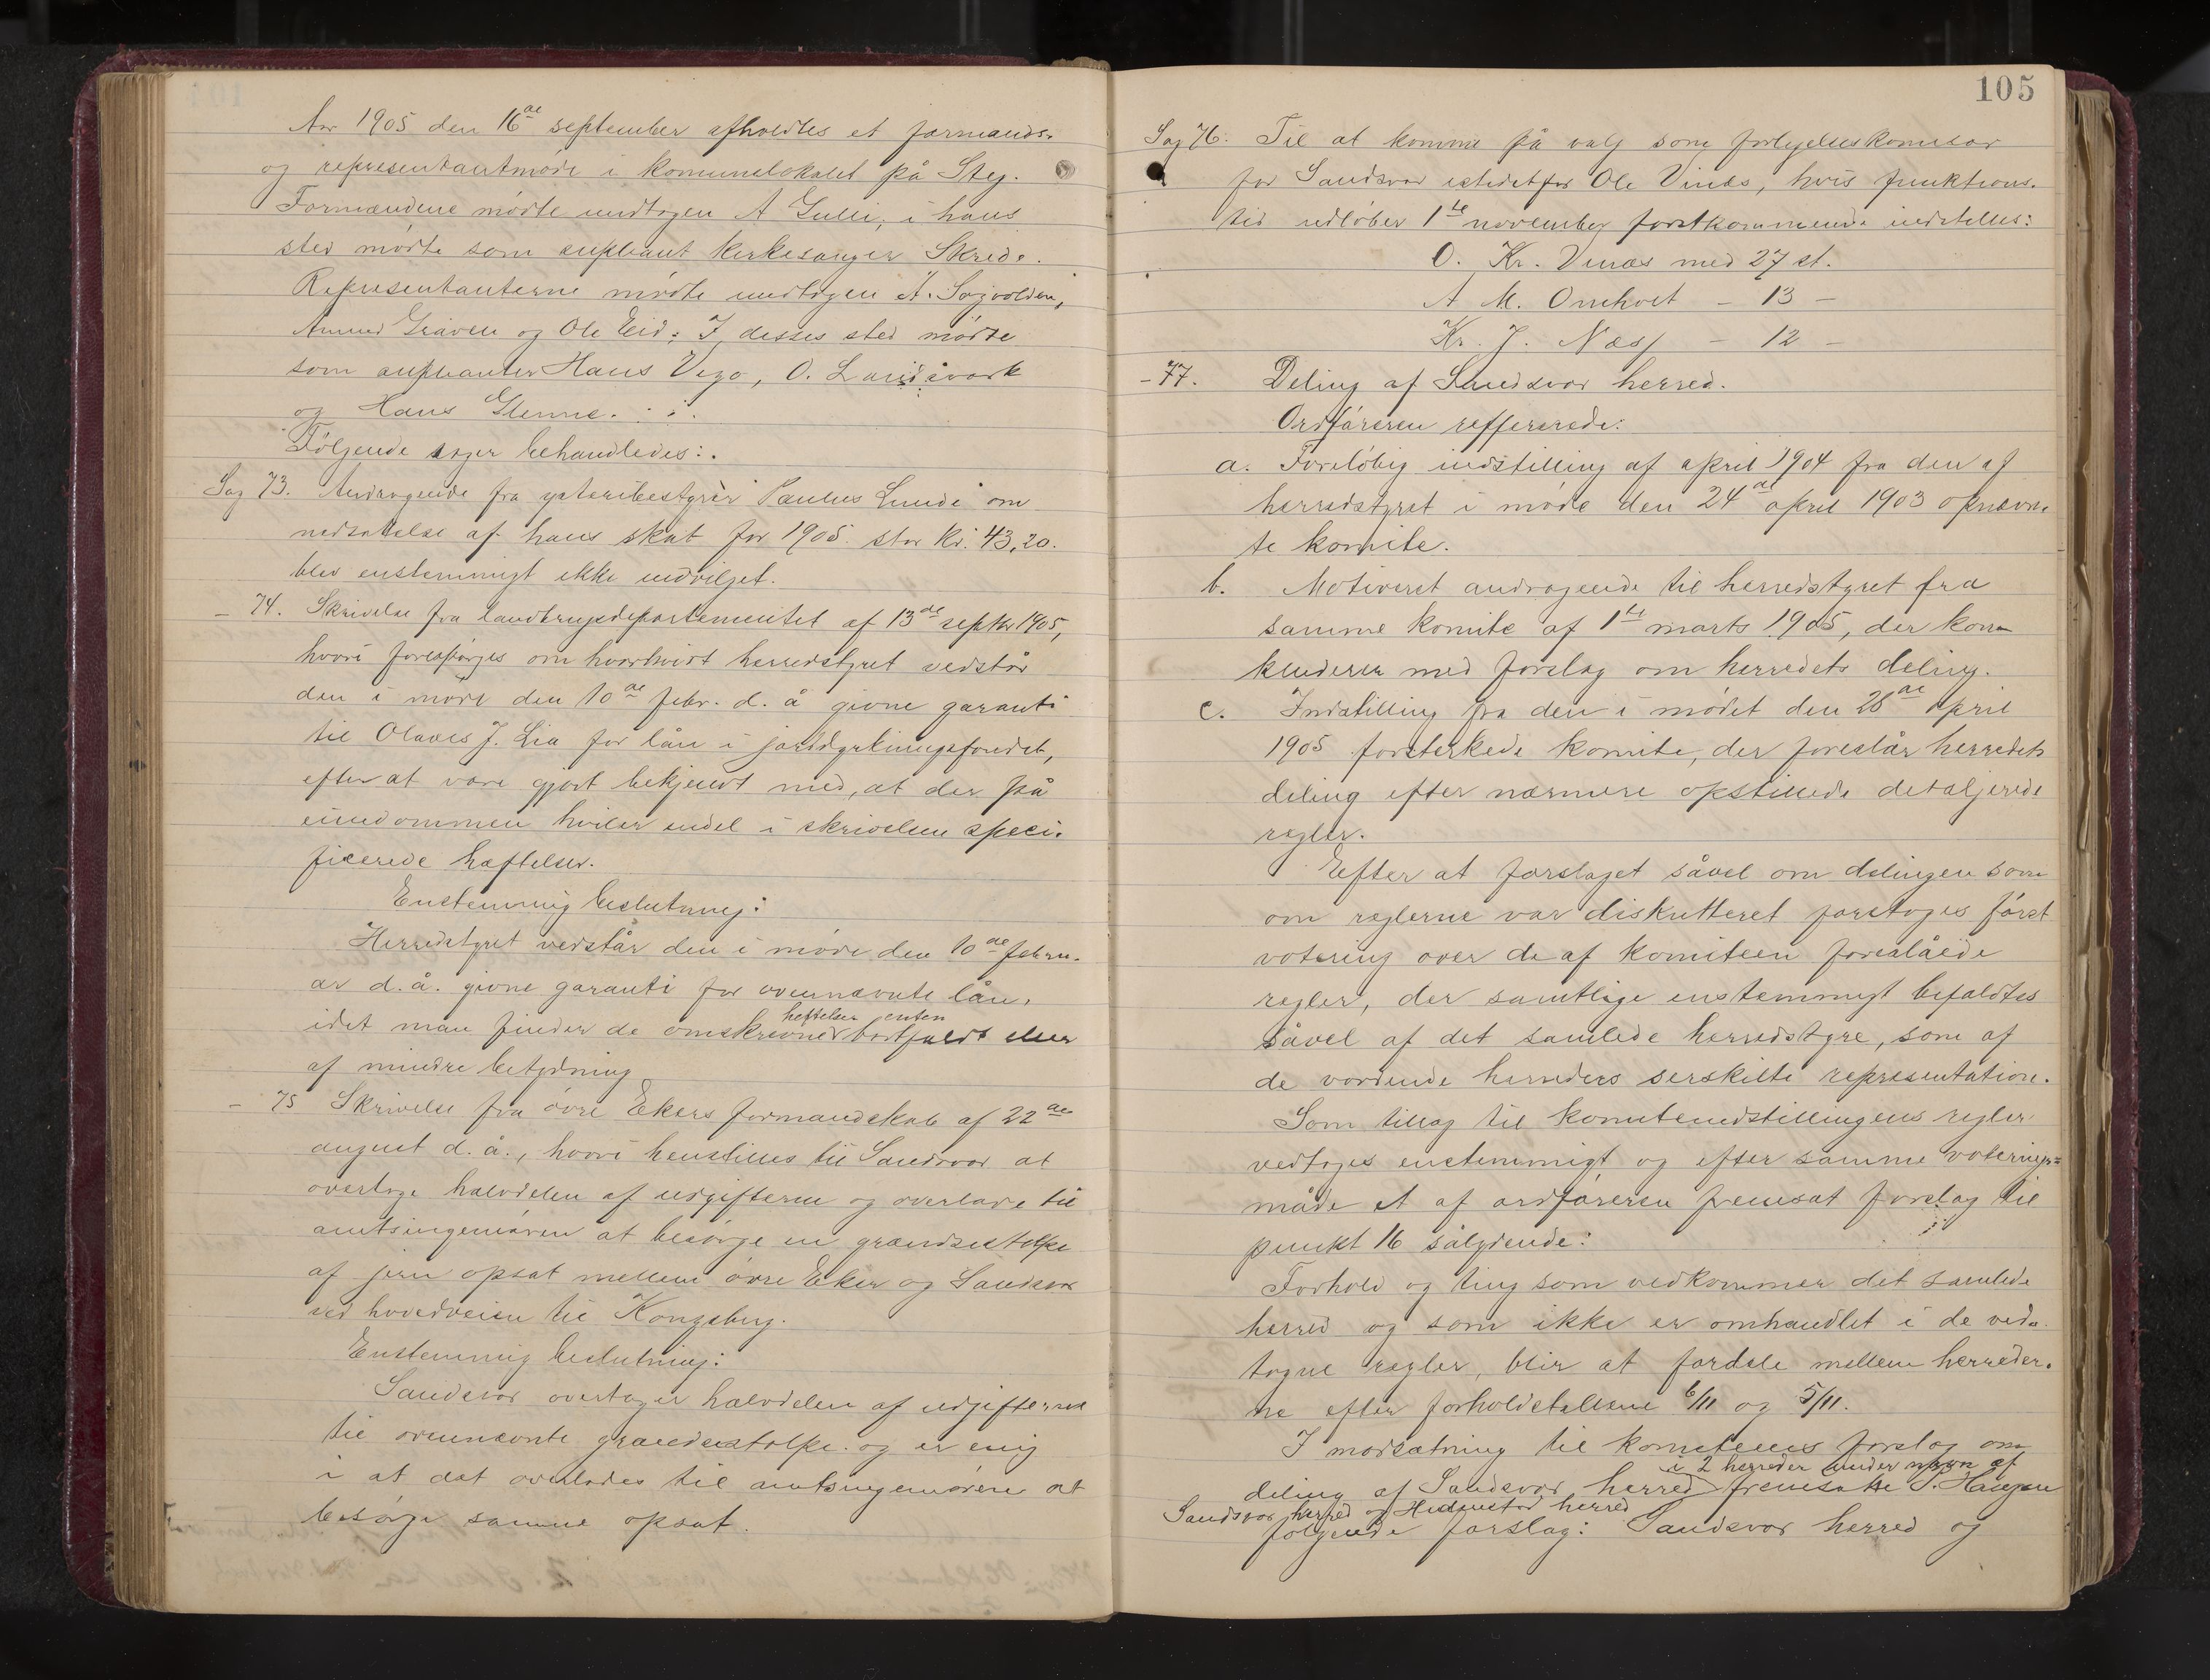 Aar 1905 den 16de september afholdtes et formands-
og representantmøde i komunelokalet på Steg.
Formændene mødte undtagen A Gulli, i hans
sted mødte som supleant kirkesanger Skrede.
Representanterne mødte undtagen A. Sagvolden,
Amund Graven og Ole Eid; I desses sted mødte
som supleanter Hans Vego, O. Landsværk
og Hans Glenne.
Følgende sager behandledes:
Sag 73. Andragende fra ysteribestyrer Paulus Lunde om
nedsættelse af hans skat for 1905 stor kr. 43,20.
blev enstemmigt ikke indvilget.
- 74. Skrivelse fra landbrugsdepartementet af 13de septbr 1905,
hvori forespørges om hvorvidt herredstyret vedstår
den i møde den 10de febr. d. å givne garanti
til Olaves J. Lia for lån i jorddyrkningsfondet,
efter at være gjort bekjendt med, at der på
eiendommen hviler endel i skrivelsen speci-
ficerede hæftelser.
Enstemmig beslutning:
Herredstyret vedstår den i møde den 10de febru-
ar d. å. givne garanti for ovennævnte lån,
idet man finder de omskrevne heftelser enten bortfaldt eller
af mindre betydning
- 75 Skrivelse fra øvre Ekers formandskab af 22de
august d. å., hvori henstilles til Sandsvær at
overtage halvdelen af udgifterne og overlade til
amtsingeniøren at besørge en grændsestolpe
af jern opsat mellem øvre Eker og Sandsvær
ved hovedveien til Kongsberg.
Enstemmig beslutning:
Sandsvær overtager halvdelen af udgifterne
til ovennævnte grændsestolpe og er enig
i at det overlades til amtsingeniøren at
besørge samme opsat.
105
Sag 76. Til at komme på valg som forligelseskomisær
for Sandsvær istedetfor Ole Vinæs, hvis funktions-
tid udløber 1ste november førstkommende indstilles:
O. Kr. Vinæs med 27 st.
A M. Omholt - 13 -
Kr. J. Næss - 12 -
- 77. Deling af Sandsvær herred.
Ordføreren reffererede:
a. Foreløbig indstilling af april 1904 fra den af
herredstyret i møde den 24de april 1903 opnævn-
te komite.
b. Motiveret andragende til herredstyret fra
samme komite af 1ste marts 1905, der kon-
kluderer med forslag om herredets deling.
c. Indstilling fra den i mødet den 28de april
1905 forsterkede komite, der foreslår herredets
deling efter nærmere opstillede detaljerede
regler.
Efter at forslaget såvel om delingen som
om reglerne var diskutteret foretoges først
votering over de af komiteen foreslåede
regler, der samtlige enstemmigt befaldtes
såvel af det samlede herredstyre, som af
de vordende herreders serskilte representation.
Som tillæg til komiteindstillingens regler
vedtoges enstemmigt og efter samme voterings-
måde et af ordføreren fremsat forslag til
punkt 16 sålydende:
Forhold og ting som vedkommer det samlede
herred og som ikke er omhandlet i de ved-
tagne regler, blir at fordele mellem herreder-
ne efter forholdstallene 6/11 og 5/11.
I modsætning til komiteens forslag om
deling af Sandsvær herred i 2 herreder under navn af
Sandsvær herred og Hedenstad herred fremsatte P. Haugen
følgende forslag: Sandsvær herred og